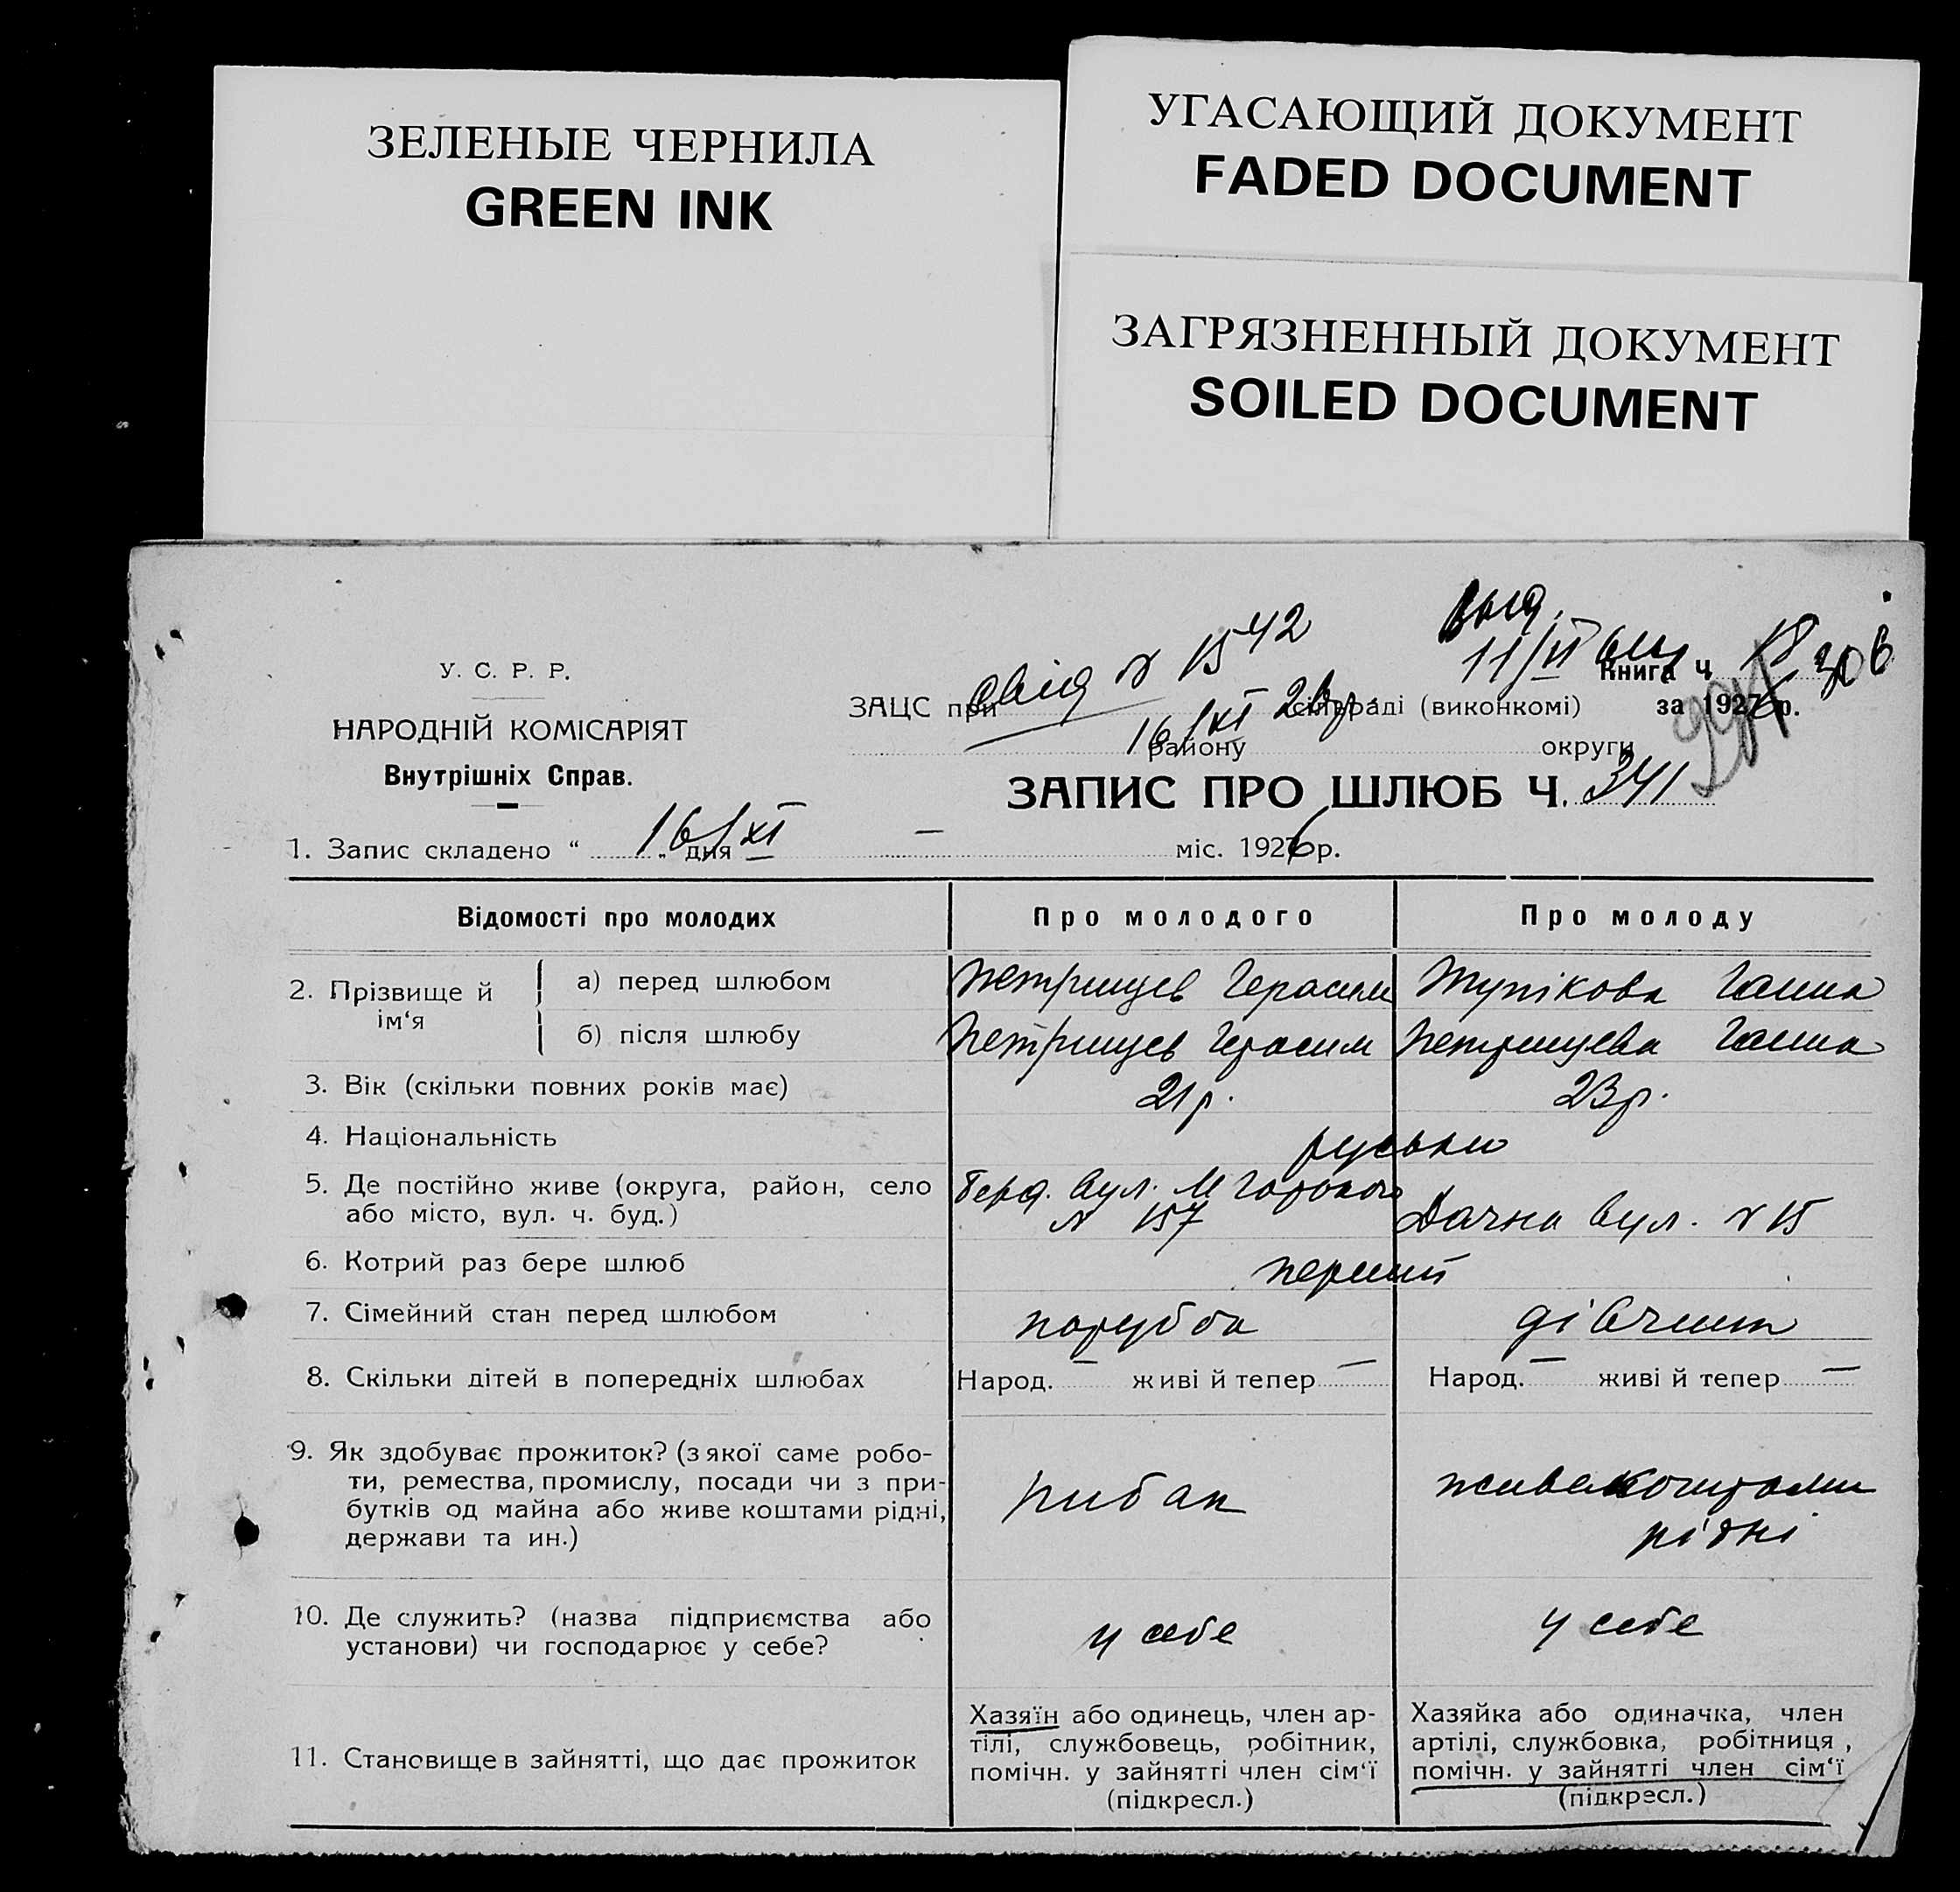 ЗЕЛЕНЫЕ ЧЕРНИЛА
GREEN INK
УГАСАЮЩИЙ ДОКУМЕНТ
FADED DOCUMENT
ЗАГРЯЗНЕННЫЙ ДОКУМЕНТ
SOILED DOCUMENT
У. С. Р. Р.
НАРОДНІЙ КОМІСАРІЯТ
Внутрішніх Справ.
Книга ч.
ЗАЦС при сільраді (виконкомі) за 1926 р.
району округи
ЗАПИС ПРО ШЛЮБ Ч. 341
1. Запис складено “ „ дня 16/XI міс. 1926 р.
Відомості про молодих Про молодого Про молоду
2. Прізвище й ім‘я
а) перед шлюбом Петрищев Герасим Тупікова Ганна
б) після шлюбу Петрищев Герасим Петрищева Ганна
3. Вік (скільки повних років має) 21 р. 23 р.
4. Національність руськи
5. Де постійно живе (округа, район, село Берд. вул. М Горького
або місто, вул. ч. буд.) № 157 Дачна вул. № 15
6. Котрий раз бере шлюб перший
7. Сімейний стан перед шлюбом парубок дівчина
8. Скільки дітей в попередніх шлюбах Народ. — живі й тепер — Народ. — живі й тепер —
9. Як здобуває прожиток? (з якої саме робо-
ти, ремества, промислу, посади чи з при-
бутків од майна або живе коштами рідні,
держави та ин.)
рибак
живе коштами
рідні
10. Де служить? (назва підприємства або
установи) чи господарює у себе?
у себе у себе
11. Становище в зайнятті, що дає прожиток
Хазяїн або одинець, член ар-
тілі, службовець, робітник,
помічн. у зайнятті член сім‘ї
(підкресл.)
Хазяйка або одиначка, член
артілі, службовка, робітниця,
помічн. у зайнятті член сім‘ї
(підкресл.)